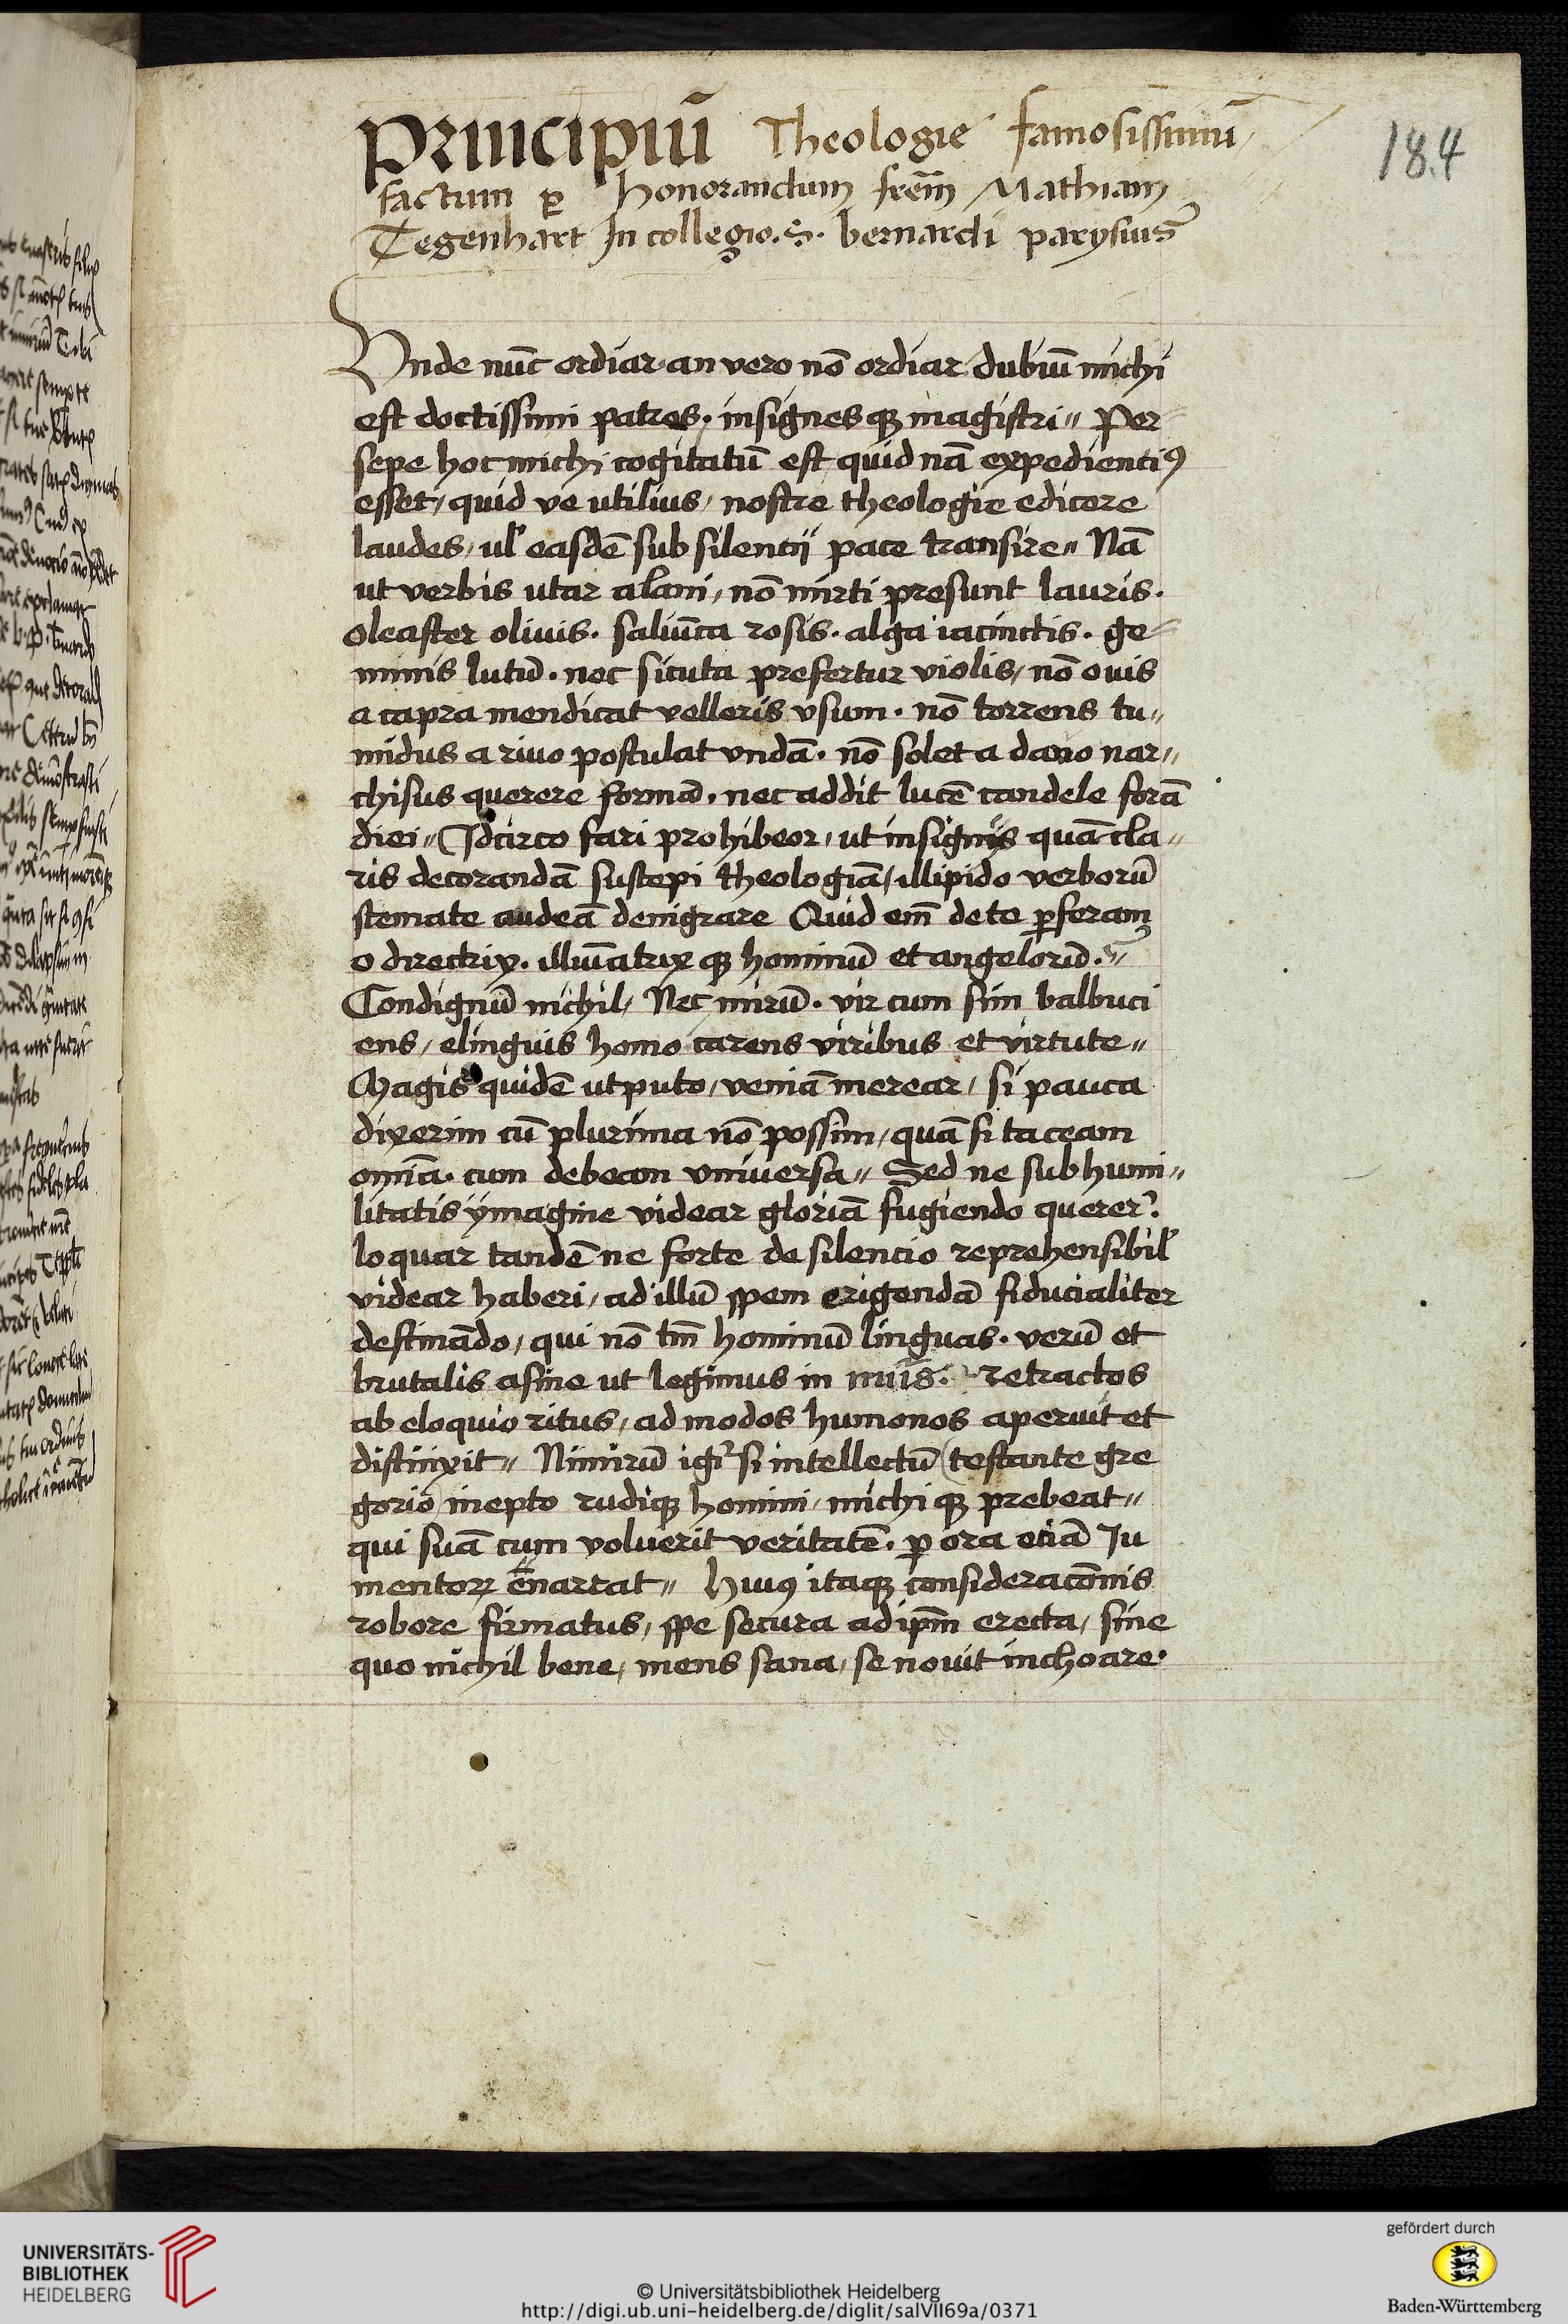 principiū Theologie famosissimū
factum ꝑ honorandum frēm Mathiam
Tegenhart In collegio .S. bernardi
184
Vnde nūc ordiar an vero nō ordiar dubiū michi
est doctissimi patres. insignesqꝫ magistri Per
sepe hoc michi cogitatū est quid nā expedientiꝰ
esset, quid ve utilius, nostre theologie edicere
laudes, ul' easdē sub silentii pace transire Nā
ut verbis utar alani, nō mirti presunt lauris.
oleaster olivis. saliūca rosis. alga iacinctis. ge
minis lutū. nec sicuta prefertur violis, nō ovis
a capra mendicat velleris vsum. nō torrens tu
midus a rivo postulat vndā. nō solet a davo nar
chisus querere formā. nec addit lucē candele forā
diei Idcirco fari prohibeor, ut insignis quā cla
ris decorandā suscepi theologiā, illipido verborū
stemate audeā denigrare Quid em̄ de te ꝑferam
o directrix. illuīatrix qꝫ hominū et angelorū.
Condignū nichil, Nec mirū. vir cum sim balbuci
ens, elinguis homo carens viribus et virtute
Magis quidē ut puto, veniā merear, si pauca
dixerim cū plurima nō possim, quā si taceam
omīa. cum debeam vniversa Sed ne sub humi
litatis ymagine videar gloriā fugiendo querer̉
loquar tandē ne forte de silencio reprehensibil'
videar haberi, ad illū spem erigendā fiducialiter
destinādo, qui nō tm̄ hominū linguas. verū et
brutalis asine ut legimus in retractos
ab eloquio ritus, ad modos humonos aperuit et
distinxit Nimirū igr̉ si intellectū (testante gre
gorio) inepto rudiqꝫ homini, michi qꝫ prebeat
qui suā cum voluerit veritatē. ꝑ ora etiā Iu
mentoꝝ ēnarrat Huiꝰ itaqꝫ consideracōnis
robore firmatus, spe secura ad ipm̄ erecta, sine
quo nichil bene, mens sana, se novit inchoare.
UNIVERSITÄTS-
BIBLIOTHEK
HEIDELBERG
© Universitätsbibliothek Heidelberg
http://digi.ub.uni-heidelberg.de/diglit/salVII69a/0371
gefördert durch
Baden-Württemberg